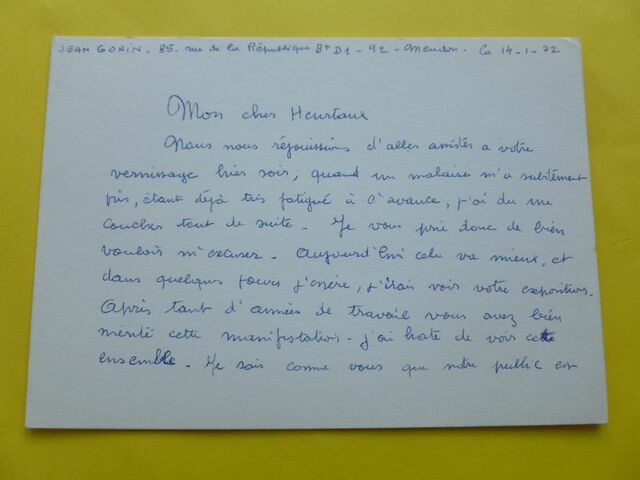 JEAN GORIN - 85 - rue de la République Bt D1 - 92 - Meudon. le 14-1-72
Mon cher Heurtaux
Nous nous réjouissions d'aller assister a votre
vernissage hier soir, quand un malaise m'a subitement
pris, étant déjà très fatigué à l'avance, j'ai du me
coucher tout de suite. Je vous prie donc de bien
vouloir m'excuser. Aujourd'hui cela va mieux, et
dans quelques jours j'espère, j'irais voir votre exposition.
Après tant d'années de travail vous avez bien
mérité cette manifestation. j'ai hate de voir cet
ensemble. Je sais comme vous que notre public est